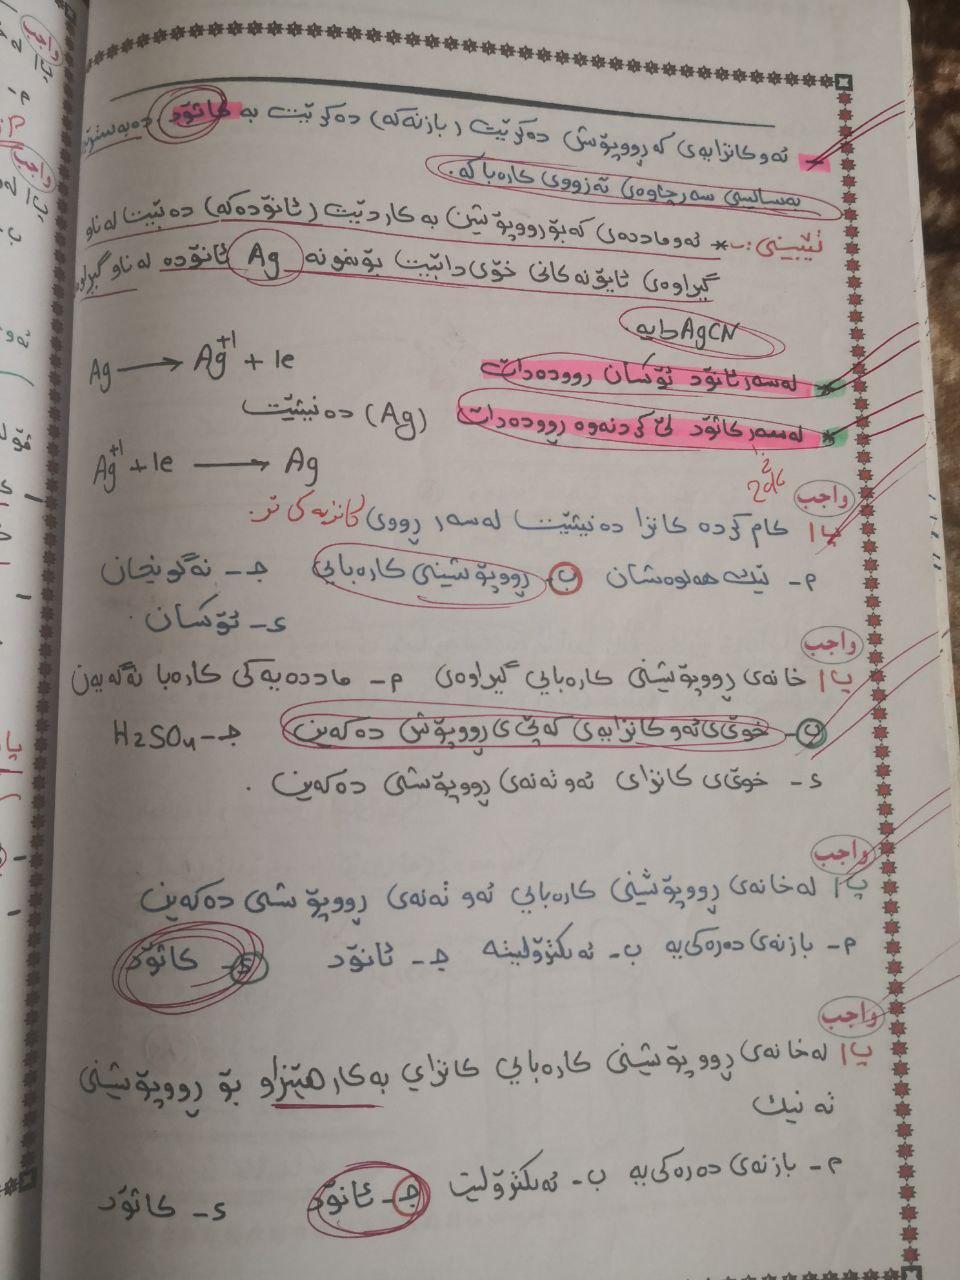 - ئەو کانزایەی کە ڕووپۆش دەکرێت (بازنەکە) دەکرێت بە کاثۆد دەبەسترێت
بەسالبی سەرچاوەی تەزووی کارەباکە.
تێبینی:- * ئەو ماددەی کە بۆ ڕووپۆشین بەکاردێت (ئانۆدەکە) دەبێت لەناو
گیراوەی ئایۆنەکانی خۆی دابێت بۆ نموونە Ag ئانۆدە لەناو گیراوەی
AgCN دایە.
* لەسەر ئانۆد ئۆکسان روودەدات Ag → Ag+1 + 1e
* لەسەر کاثۆد لێکردنەوە ڕوودەدات (Ag) دەنیشێت
Ag+1 + 1e → Ag
واجب
پ/ کام کردە کانزا دەنیشێت لەسەر ڕووی کانزیەکی تر.
م- لێک هەلوەشان ب- ڕووپۆشینی کارەبایی جـ- نەگونجان
ء- ئۆکسان.
واجب
پ/ خانەی ڕووپۆشینی کارەبایی گیراوەی م- ماددەیەکی کارەبا نەگەیەن
ب- خوێی ئەو کانزایەی کە پێی ڕووپۆش دەکەین جـ- H2SO4
ء- خوێی کانزای ئەو تەنەی ڕووپۆشی دەکەین.
واجب
پ/ لەخانەی ڕووپۆشینی کارەبایی ئەو تەنەی ڕووپۆشی دەکەین
م- بازنەی دەرەکی یە ب- ئەلکترۆلیتە جـ- ئانۆد ء- کاثۆد
واجب
پ/ لەخانەی ڕووپۆشینی کارەبایی کانزای بەکارهێنراو بۆ ڕووپۆشینی
تەنیک
م- بازنەی دەرەکی یە ب- ئەلکترۆلیت جـ- ئانۆد ء- کاثۆد